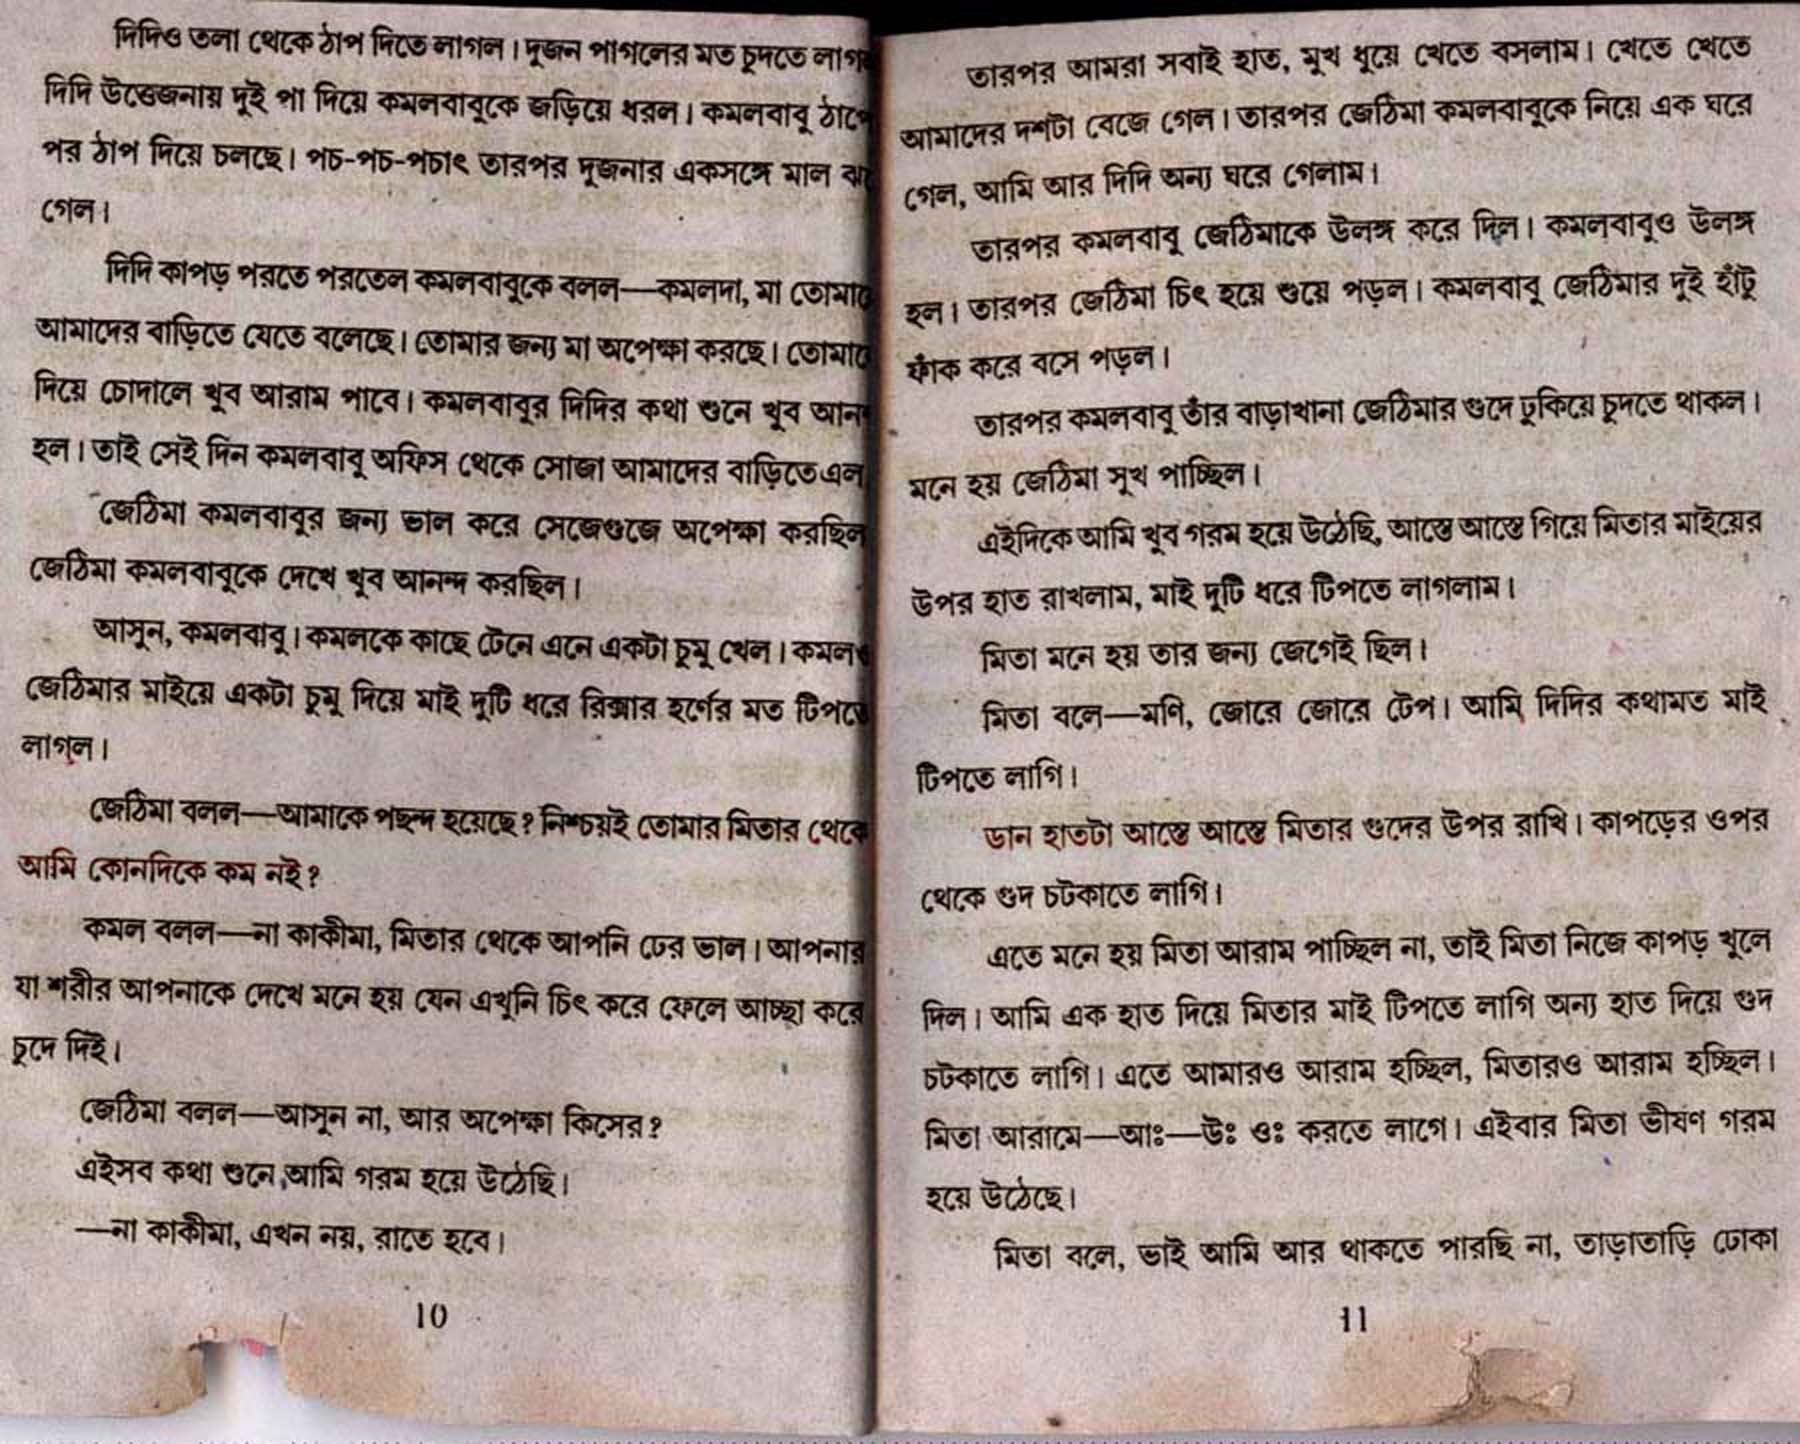 দিদিও তলা থেকে ঠাপ দিতে লাগল। দুজন পাগলের মত চুদতে
দিদি উত্তেজনায় দুই পা দিয়ে কমলবাবুকে জড়িয়ে ধরল। কমলবাবু
পর ঠাপ দিয়ে চলছে। পচ-পচ-পচাৎ তারপর দুজনার একসঙ্গে মাল
গেল।
দিদি কাপড় পরতে পরতেল কমলবাবুকে বলল—কমলদা, মা
আমাদের বাড়িতে যেতে বলেছে। তোমার জন্য মা অপেক্ষা করছে।
দিয়ে চোদালে খুব আরাম পাবে। কমলবাবুর দিদির কথা শুনে খুব
হল। তাই সেই দিন কমলবাবু অফিস থেকে সোজা আমাদের বাড়িতে এল
জেঠিমা কমলবাবুর জন্য ভাল করে সেজেগুজে অপেক্ষা করছিল
জেঠিমা কমলবাবুকে দেখে খুব আনন্দ করছিল।
আসুন, কমলবাবু। কমলকে কাছে টেনে এনে একটা চুমু খেল।
জেঠিমার মাইয়ে একটা চুমু দিয়ে মাই দুটি ধরে রিক্সার হর্ণের মত টিপতে
লাগল।
জেঠিমা বলল—আমাকে পছন্দ হয়েছে? নিশ্চয়ই তোমার মিতার থেকে
আমি কোনদিকে কম নই?
কমল বলল—না কাকীমা, মিতার থেকে আপনি ঢের ভাল। আপনার
যা শরীর আপনাকে দেখে মনে হয় যেন এখুনি চিৎ করে ফেলে আচ্ছা করে
চুদে দিই।
জেঠিমা বলল—আসুন না, আর অপেক্ষা কিসের?
এইসব কথা শুনে আমি গরম হয়ে উঠেছি।
—না কাকীমা, এখন নয়, রাতে হবে।
10
তারপর আমরা সবাই হাত, মুখ ধুয়ে খেতে বসলাম। খেতে খেতে
আমাদের দশটা বেজে গেল। তারপর জেঠিমা কমলবাবুকে নিয়ে এক ঘরে
গেল, আমি আর দিদি অন্য ঘরে গেলাম।
তারপর কমলবাবু জেঠিমাকে উলঙ্গ করে দিল। কমলবাবুও উলঙ্গ
হল। তারপর জেঠিমা চিৎ হয়ে শুয়ে পড়ল। কমলবাবু জেঠিমার দুই হাঁটু
ফাঁক করে বসে পড়ল।
তারপর কমলবাবু তাঁর বাড়াখানা জেঠিমার গুদে ঢুকিয়ে চুদতে থাকল।
মনে হয় জেঠিমা সুখ পাচ্ছিল।
এইদিকে আমি খুব গরম হয়ে উঠেছি, আস্তে আস্তে গিয়ে মিতার মাইয়ের
উপর হাত রাখলাম, মাই দুটি ধরে টিপতে লাগলাম।
মিতা মনে হয় তার জন্য জেগেই ছিল।
মিতা বলে—মণি, জোরে জোরে টেপ। আমি দিদির কথামত মাই
টিপতে লাগি।
ডান হাতটা আস্তে আস্তে মিতার গুদের উপর রাখি। কাপড়ের ওপর
থেকে গুদ চটকাতে লাগি।
এতে মনে হয় মিতা আরাম পাচ্ছিল না, তাই মিতা নিজে কাপড় খুলে
দিল। আমি এক হাত দিয়ে মিতার মাই টিপতে লাগি অন্য হাত দিয়ে গুদ
চটকাতে লাগি। এতে আমারও আরাম হচ্ছিল, মিতারও আরাম হচ্ছিল।
মিতা আরামে—আঃ—উঃ ওঃ করতে লাগে। এইবার মিতা ভীষণ গরম
হয়ে উঠেছে।
মিতা বলে, ভাই আমি আর থাকতে পারছি না, তাড়াতাড়ি ঢোকা
11